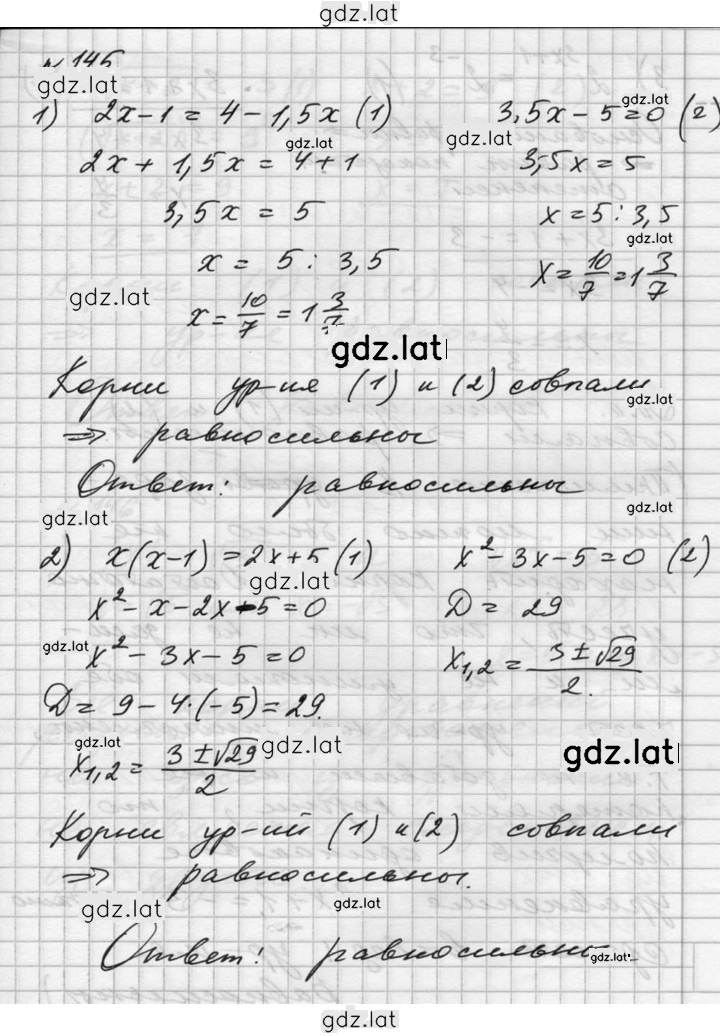 gdz.lat
№ 145
gdz.lat
1) 2x-1 = 4-1,5x (1) 3,5x-5=0 (2)
gdz.lat
gdz.lat gdz.lat
2x+1,5x = 4+1 3,5x = 5
3,5x = 5 x=5:3,5
gdz.lat
x = 5:3,5 x=10/7=1 3/7
gdz.lat
x=10/7=1 3/7
gdz.lat
Корни ур-ия (1) и (2) совпали
gdz.lat
⇒ равносильны
Ответ: равносильны
gdz.lat gdz.lat
2) x(x-1)=2x+5 (1) x²-3x-5=0 (2)
gdz.lat
x²-x-2x-5=0 D= 29
gdz.lat
x²-3x-5=0 x₁,₂ = (3±√29)/2.
D= 9-4·(-5)=29.
gdz.lat gdz.lat gdz.lat
x₁,₂ = (3±√29)/2
Корни ур-ий (1) и (2) совпали
⇒ равносильны.
gdz.lat gdz.lat
Ответ: равносильн
gdz.lat
gdz.lat